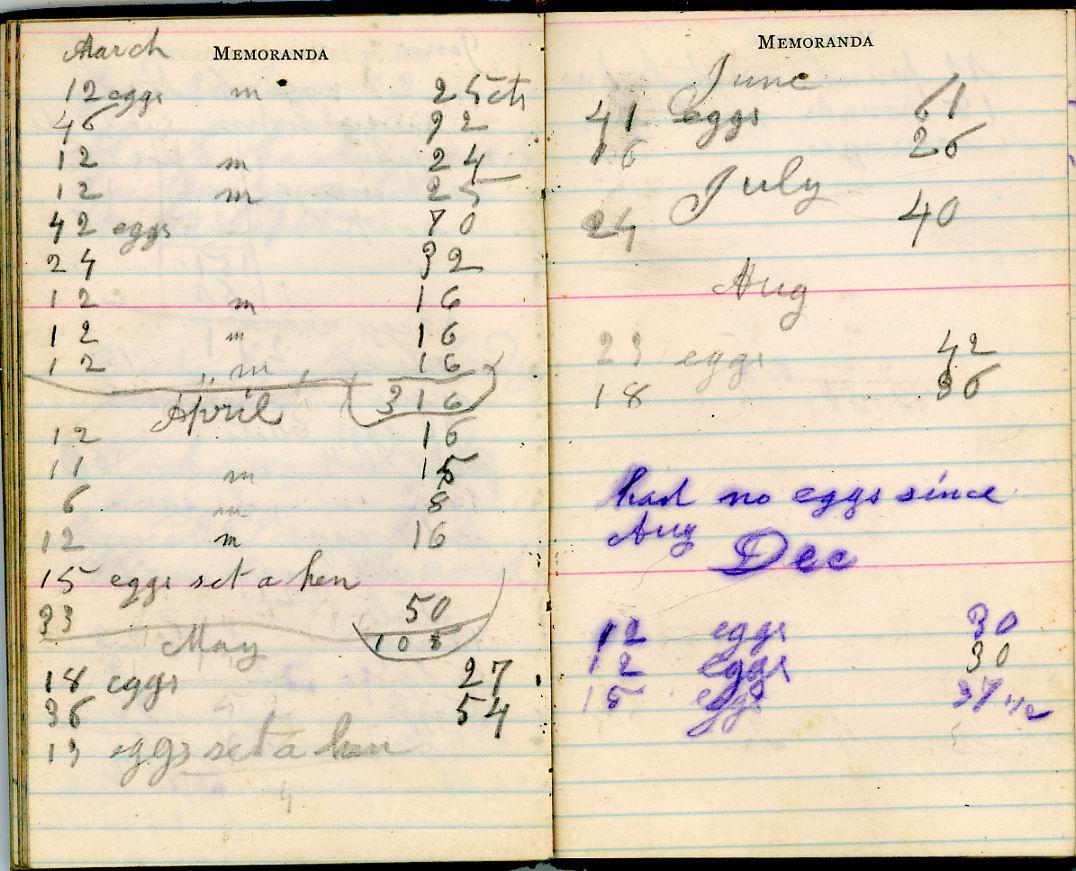 March
MEMORANDA
12 eggs m 25cts
46 92
12 m 24
12 m 25
42 eggs 70
24 32
12 m 16
12 m 16
12 " m 16
316
April
12 16
11 m 15
6 m 8
12 m 16
15 eggs set a hen
33 50
108
May
18 eggs 27
36 54
13 eggs set a hen
MEMORANDA
June
41 eggs 61
16 26
July
24 40
Aug
23 eggs 42
18 36
had no eggs since
Aug
Dec
12 eggs 30
12 eggs 30
15 eggs 37 1/2